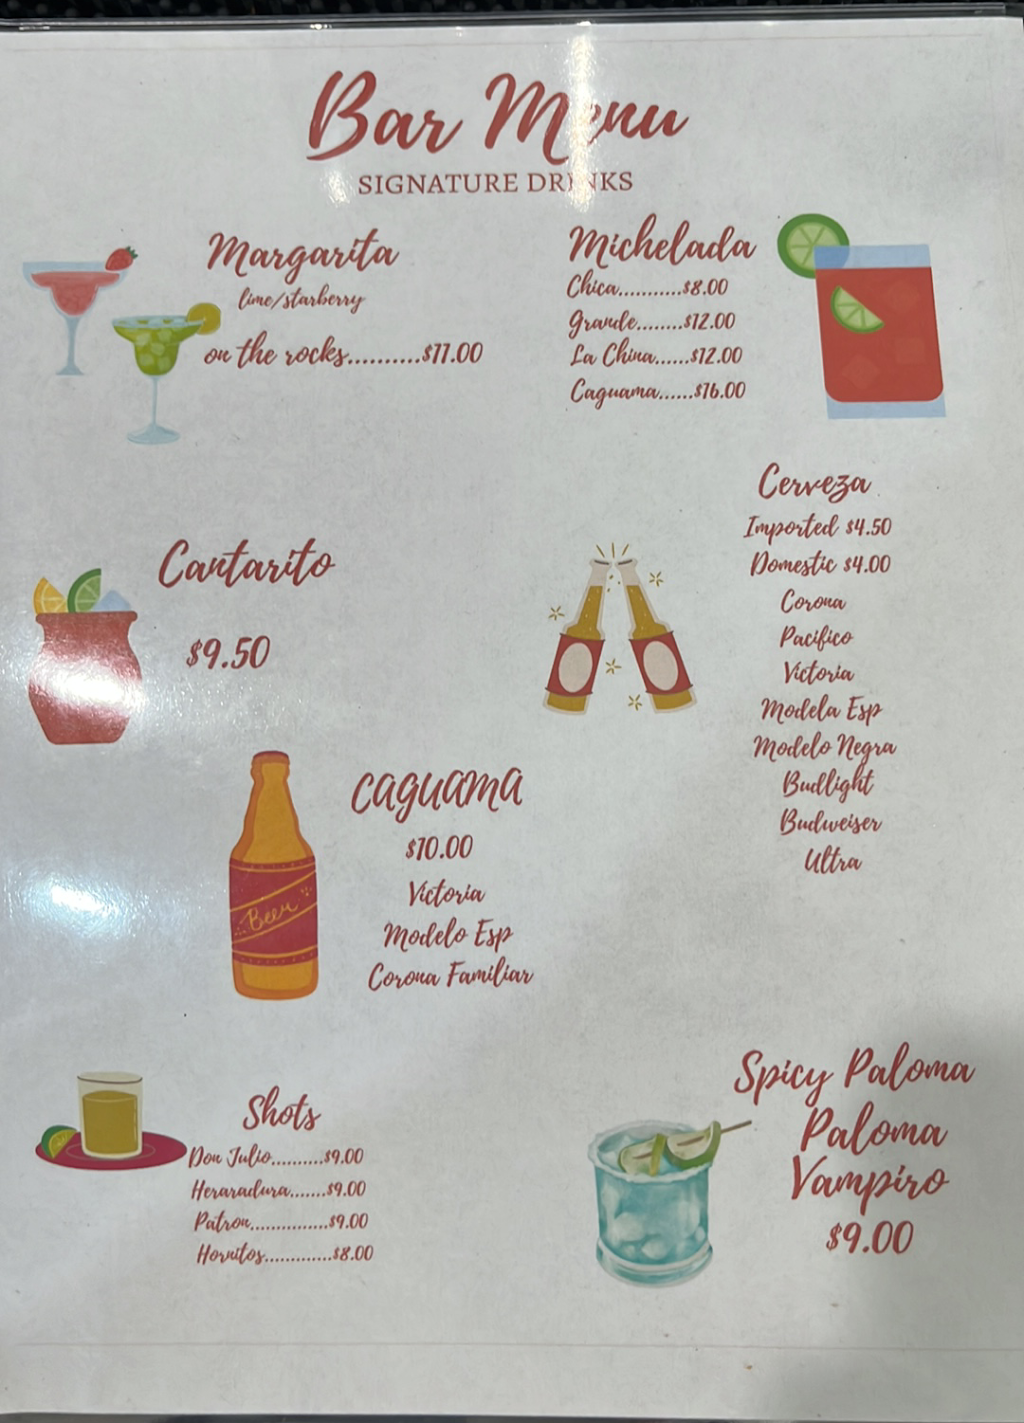 Bar Menu
SIGNATURE DRINKS
Margarita
lime/starberry
on the rocks..........$11.00
Michelada
Chica...........$8.00
Grande........$12.00
La China......$12.00
Caguama......$16.00
Cerveza
Imported $4.50
Domestic $4.00
Corona
Pacifico
Victoria
Modela Esp
Modelo Negra
Budlight
Budweiser
Ultra
Cantarito
$9.50
CAGUAMA
$10.00
Victoria
Modelo Esp
Corona Familiar
Beer
Shots
Don Julio..........$9.00
Heraradura.......$9.00
Patron...............$9.00
Hornitos.............$8.00
Spicy Paloma
Paloma
Vampiro
$9.00